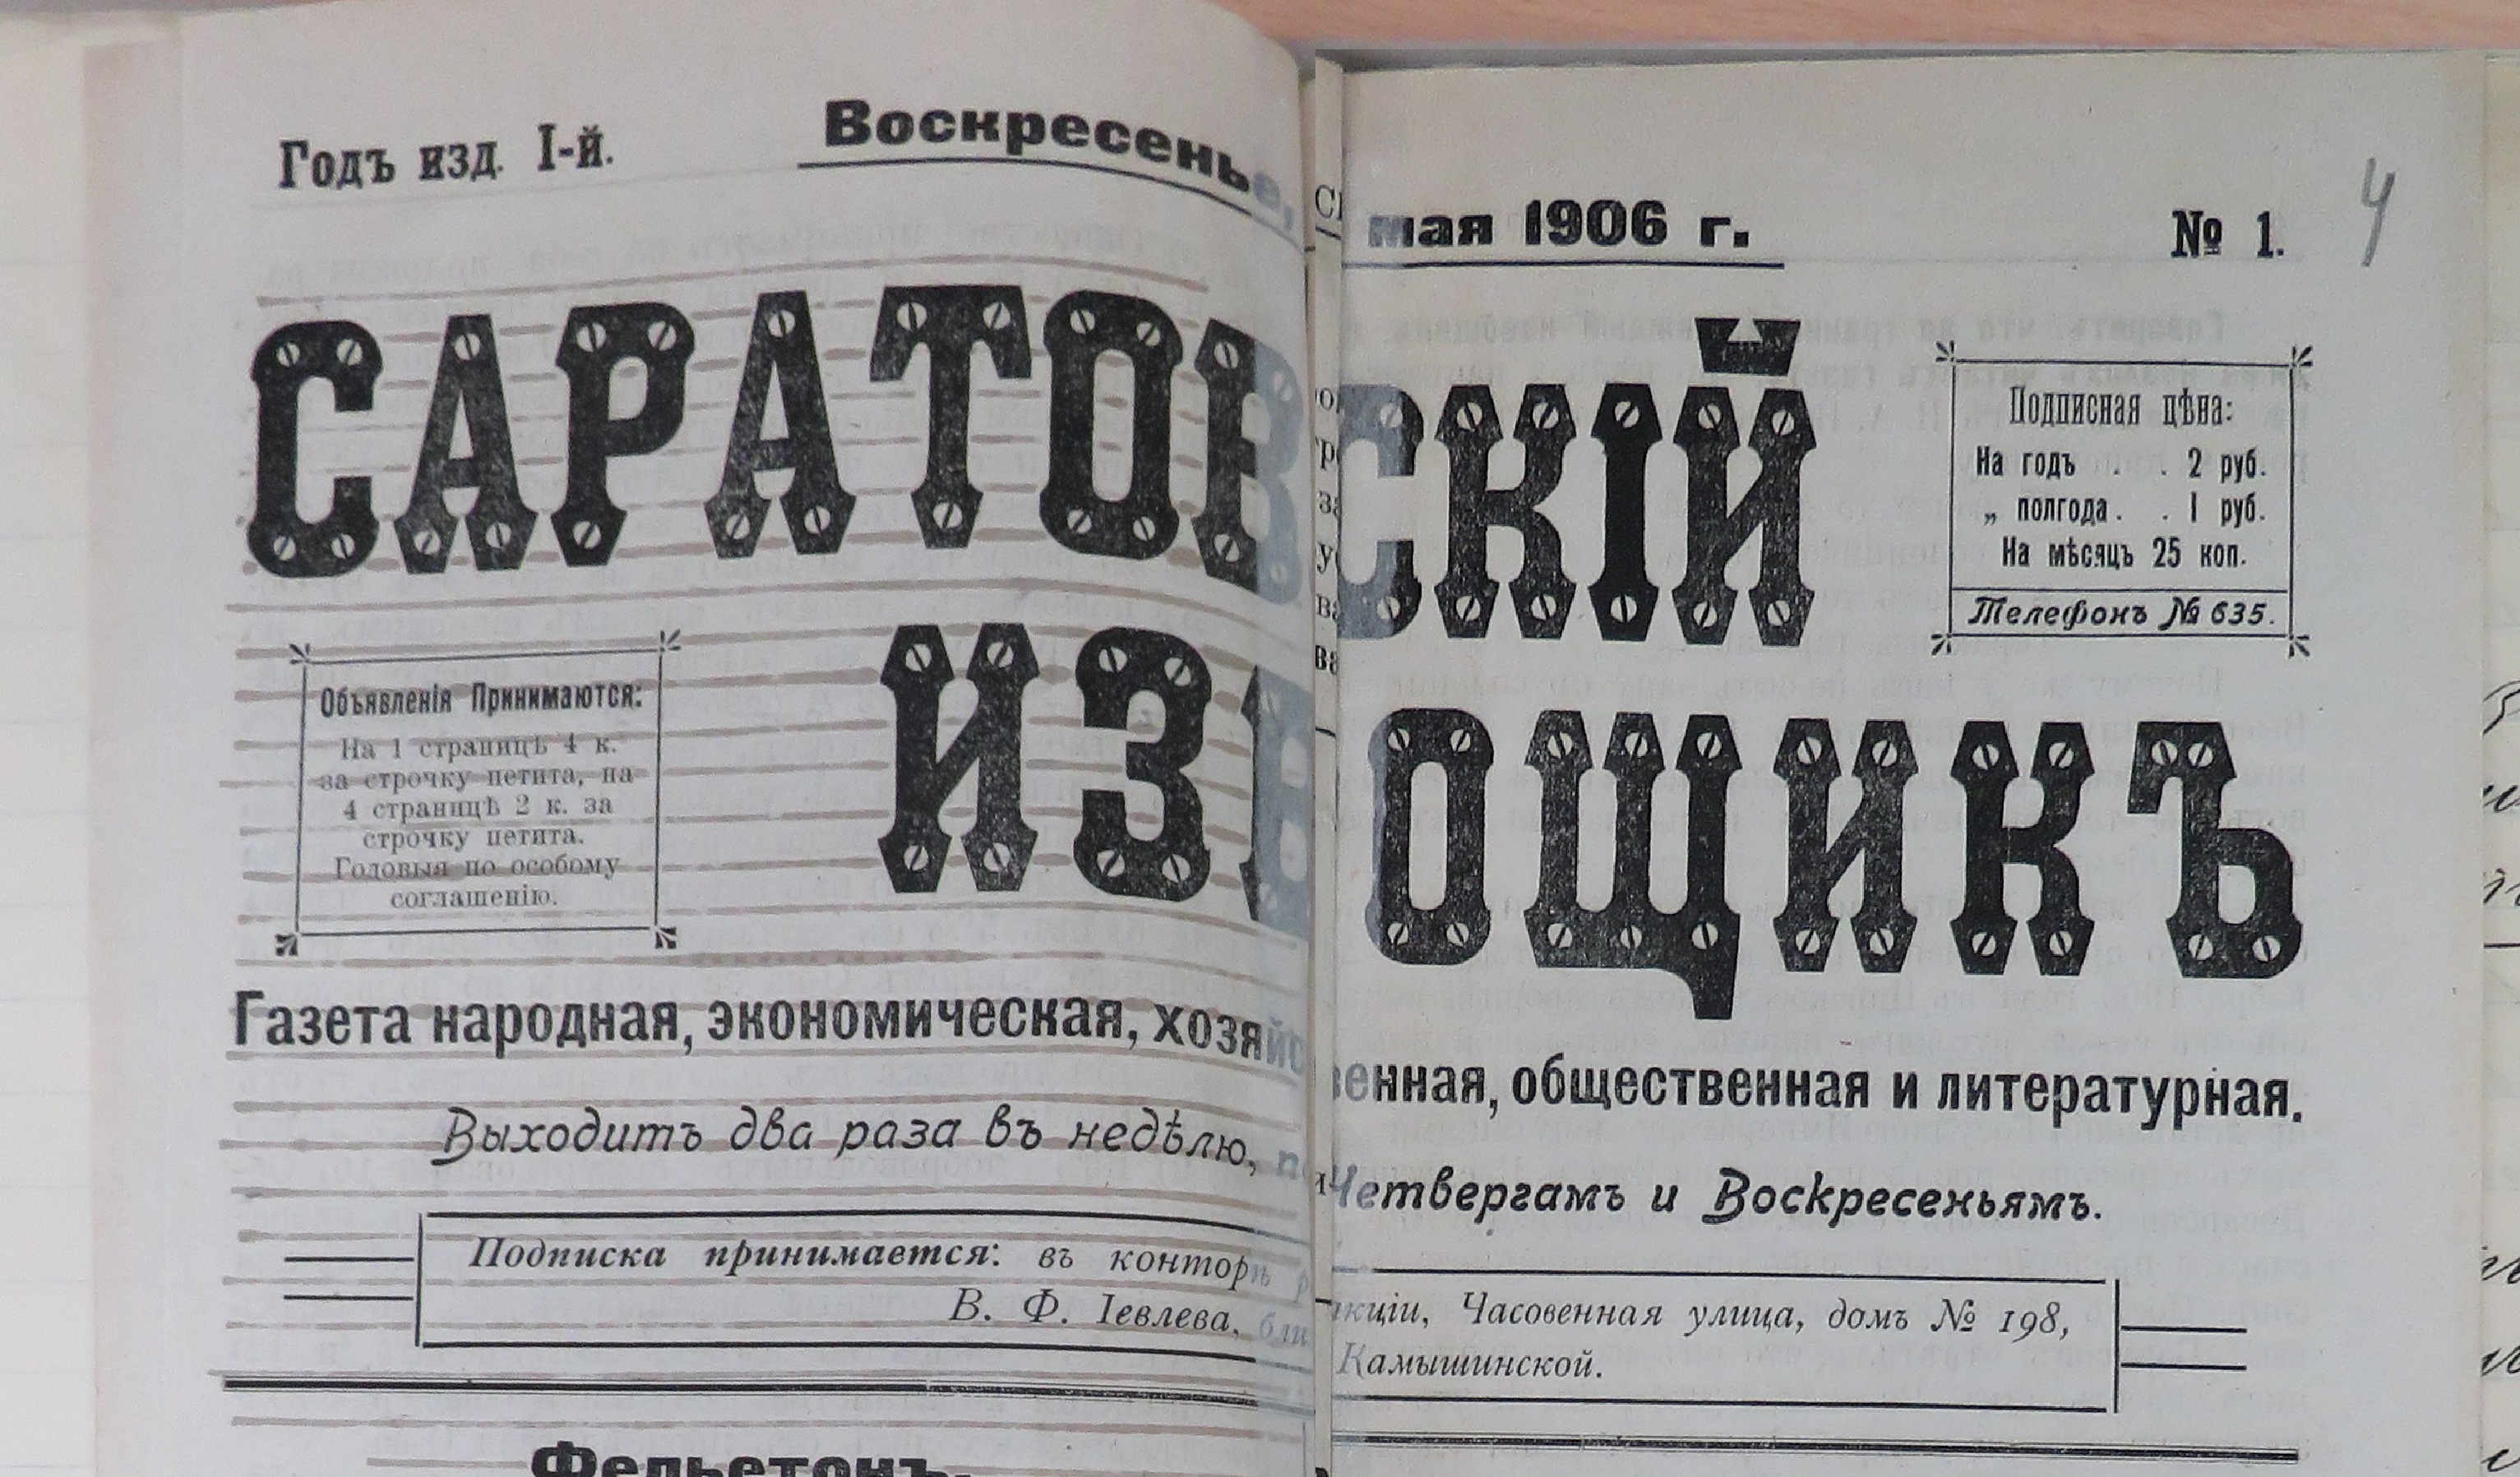 Годъ изд. I-й.
Воскресенье, мая 1906 г.
№ 1.
4
САРАТОВСКІЙ
Подписная цѣна:
На годъ . . 2 руб.
„ полгода . . 1 руб.
На мѣсяцъ 25 коп.
Телефонъ № 635.
Объявленія Принимаются:
На 1 страницѣ 4 к.
за строчку петита, на
4 страницѣ 2 к. за
строчку петита.
Годовыя по особому
соглашенію.
ИЗВОЩИКЪ
Газета народная, экономическая, хозяйственная, общественная и литературная.
Выходитъ два раза въ недѣлю, по Четвергамъ и Воскресеньямъ.
Подписка принимается: въ конторѣ редакціи, Часовенная улица, домъ № 198,
В. Ф. Іевлева, близъ Камышинской.
Фельетонъ.